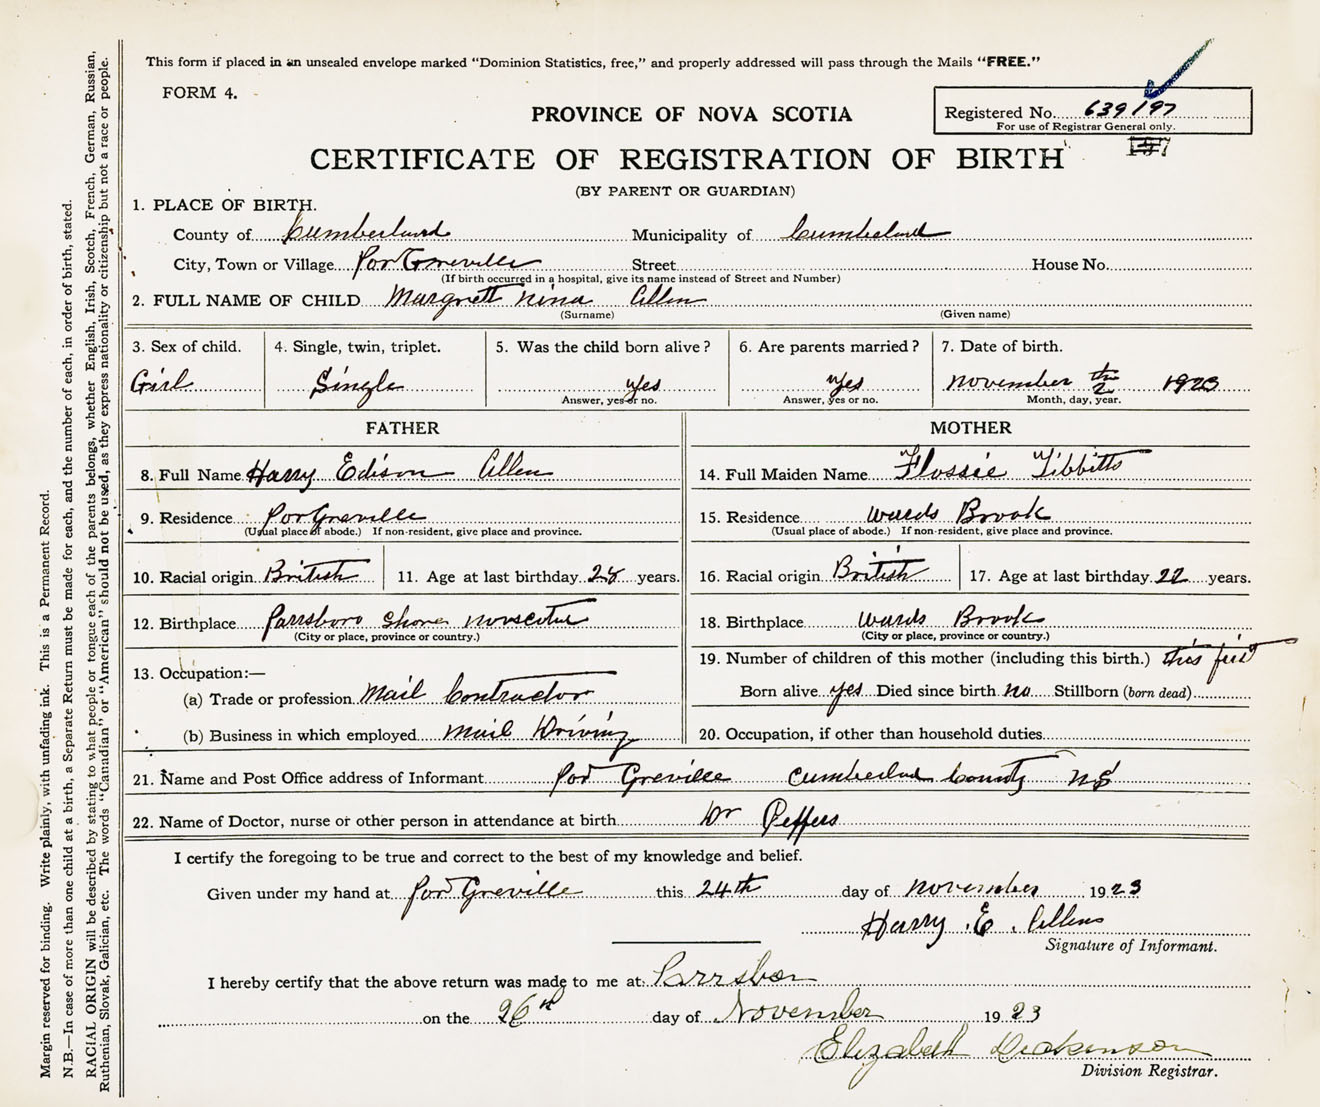 This form if placed in an unsealed envelope marked "Dominion Statistics, free," and properly addressed will pass through the Mails "FREE."
FORM 4.
PROVINCE OF NOVA SCOTIA
Registered No. 639197
For use of Registrar General only.
CERTIFICATE OF REGISTRATION OF BIRTH
(BY PARENT OR GUARDIAN)
1. PLACE OF BIRTH.
County of Cumberland Municipality of Cumberland
City, Town or Village Port Greville Street House No.
(If birth occurred in a hospital, give its name instead of Street and Number)
2. FULL NAME OF CHILD Margrett Nina Allen
(Surname) (Given name)
3. Sex of child. 4. Single, twin, triplet. 5. Was the child born alive? 6. Are parents married? 7. Date of birth.
Girl Single yes yes November 2 1923
Answer, yes or no. Answer, yes or no. Month, day, year.
FATHER MOTHER
8. Full Name Harry Edison Allen 14. Full Maiden Name Flossie Tibbitts
9. Residence Port Greville 15. Residence Wards Brook
(Usual place of abode.) If non-resident, give place and province. (Usual place of abode.) If non-resident, give place and province.
10. Racial origin British 11. Age at last birthday 28 years. 16. Racial origin British 17. Age at last birthday 22 years.
12. Birthplace Parrsboro Shore 18. Birthplace Wards Brook
(City or place, province or country.) (City or place, province or country.)
13. Occupation:— 19. Number of children of this mother (including this birth.) this first
(a) Trade or profession Mail Contractor Born alive yes Died since birth no Stillborn (born dead)
(b) Business in which employed Mail Driving 20. Occupation, if other than household duties
21. Name and Post Office address of Informant Port Greville Cumberland County NS
22. Name of Doctor, nurse or other person in attendance at birth Dr Peffers
I certify the foregoing to be true and correct to the best of my knowledge and belief.
Given under my hand at Port Greville this 24th day of November 1923
Harry E. Allen
Signature of Informant.
I hereby certify that the above return was made to me at Parrsboro
on the 26th day of November 1923
Elizabeth Dickenson
Division Registrar.
Margin reserved for binding. Write plainly, with unfading ink. This is a Permanent Record.
N.B.—In case of more than one child at a birth, a Separate Return must be made for each, and the number of each, in order of birth, stated.
RACIAL ORIGIN will be described by stating to what people or tongue each of the parents belongs, whether English, Irish, Scotch, French, German, Russian,
Ruthenian, Slovak, Galician, etc. The words "Canadian" or "American" should not be used, as they express nationality or citizenship but not a race or people.